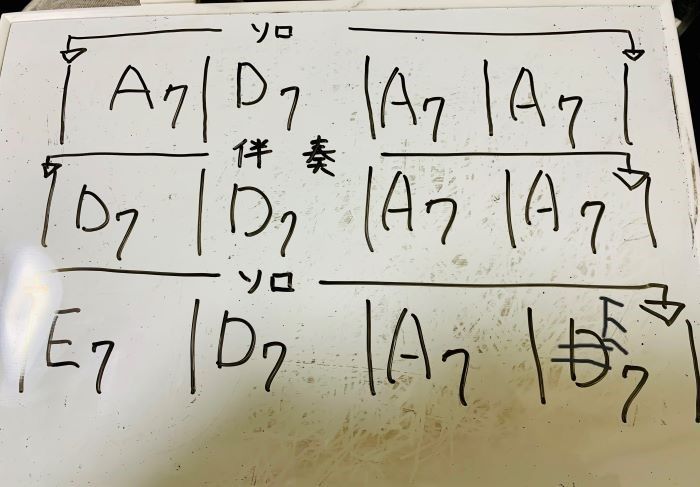 ソロ
| A7 | D7 | A7 | A7 |
伴奏
| D7 | D7 | A7 | A7 |
ソロ
| E7 | D7 | A7 | E7 |